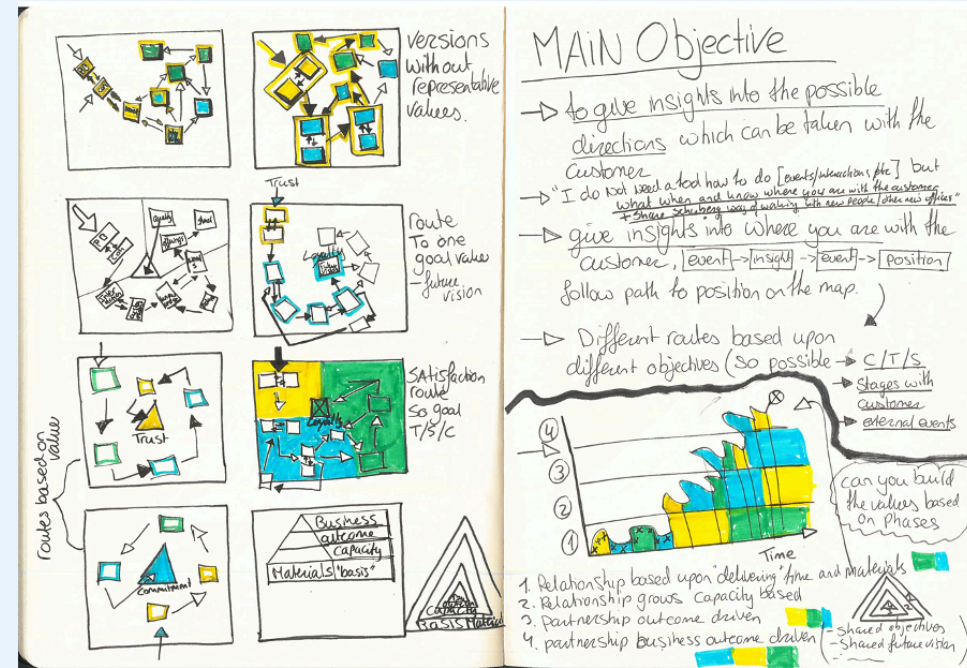 versions
without
representative
values.
Trust
route
To one
goal value
- future
vision
Loyalty
future
vision
SAtisfaction
route
so goal
T/S/C
Loyalty
Trust
routes based on
value
Commitment
Business
outcome
Capacity
Materials "basis"
Capacity
BASIS Material
MAIN Objective
to give insights into the possible
directions which can be taken with the
customer
"I do not need a tool how to do [events/interactions, etc] but
what when and know where you are with the customer
+ share schuberg way of working with new people/other new offices"
give insights into where you are with the
customer, event -> insight -> event -> position
follow path to position on the map.
Different routes based upon
different objectives (so possible → C/T/S
→ Stages with
customer
→ external events
4
3
2
1
Time
can you build
the values based
on Phases
1. Relationship based upon "delivering" time and materials
2. Relationship grows Capacity based
3. partnership outcome driven
4. partnership business outcome driven
- shared objectives
- shared future vision